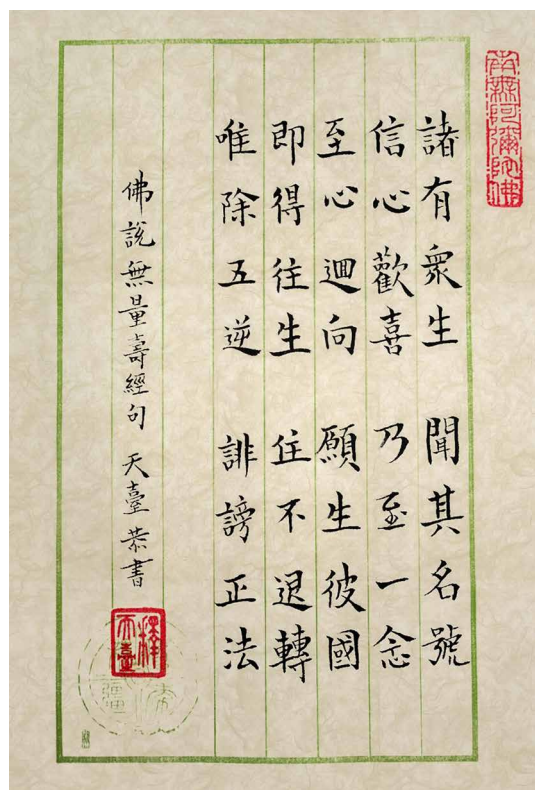 南無阿彌陀佛
諸有衆生 聞其名號
信心歡喜 乃至一念
至心迴向 願生彼國
即得往生 住不退轉
唯除五逆 誹謗正法
佛說無量壽經句 天臺恭書
釋天臺